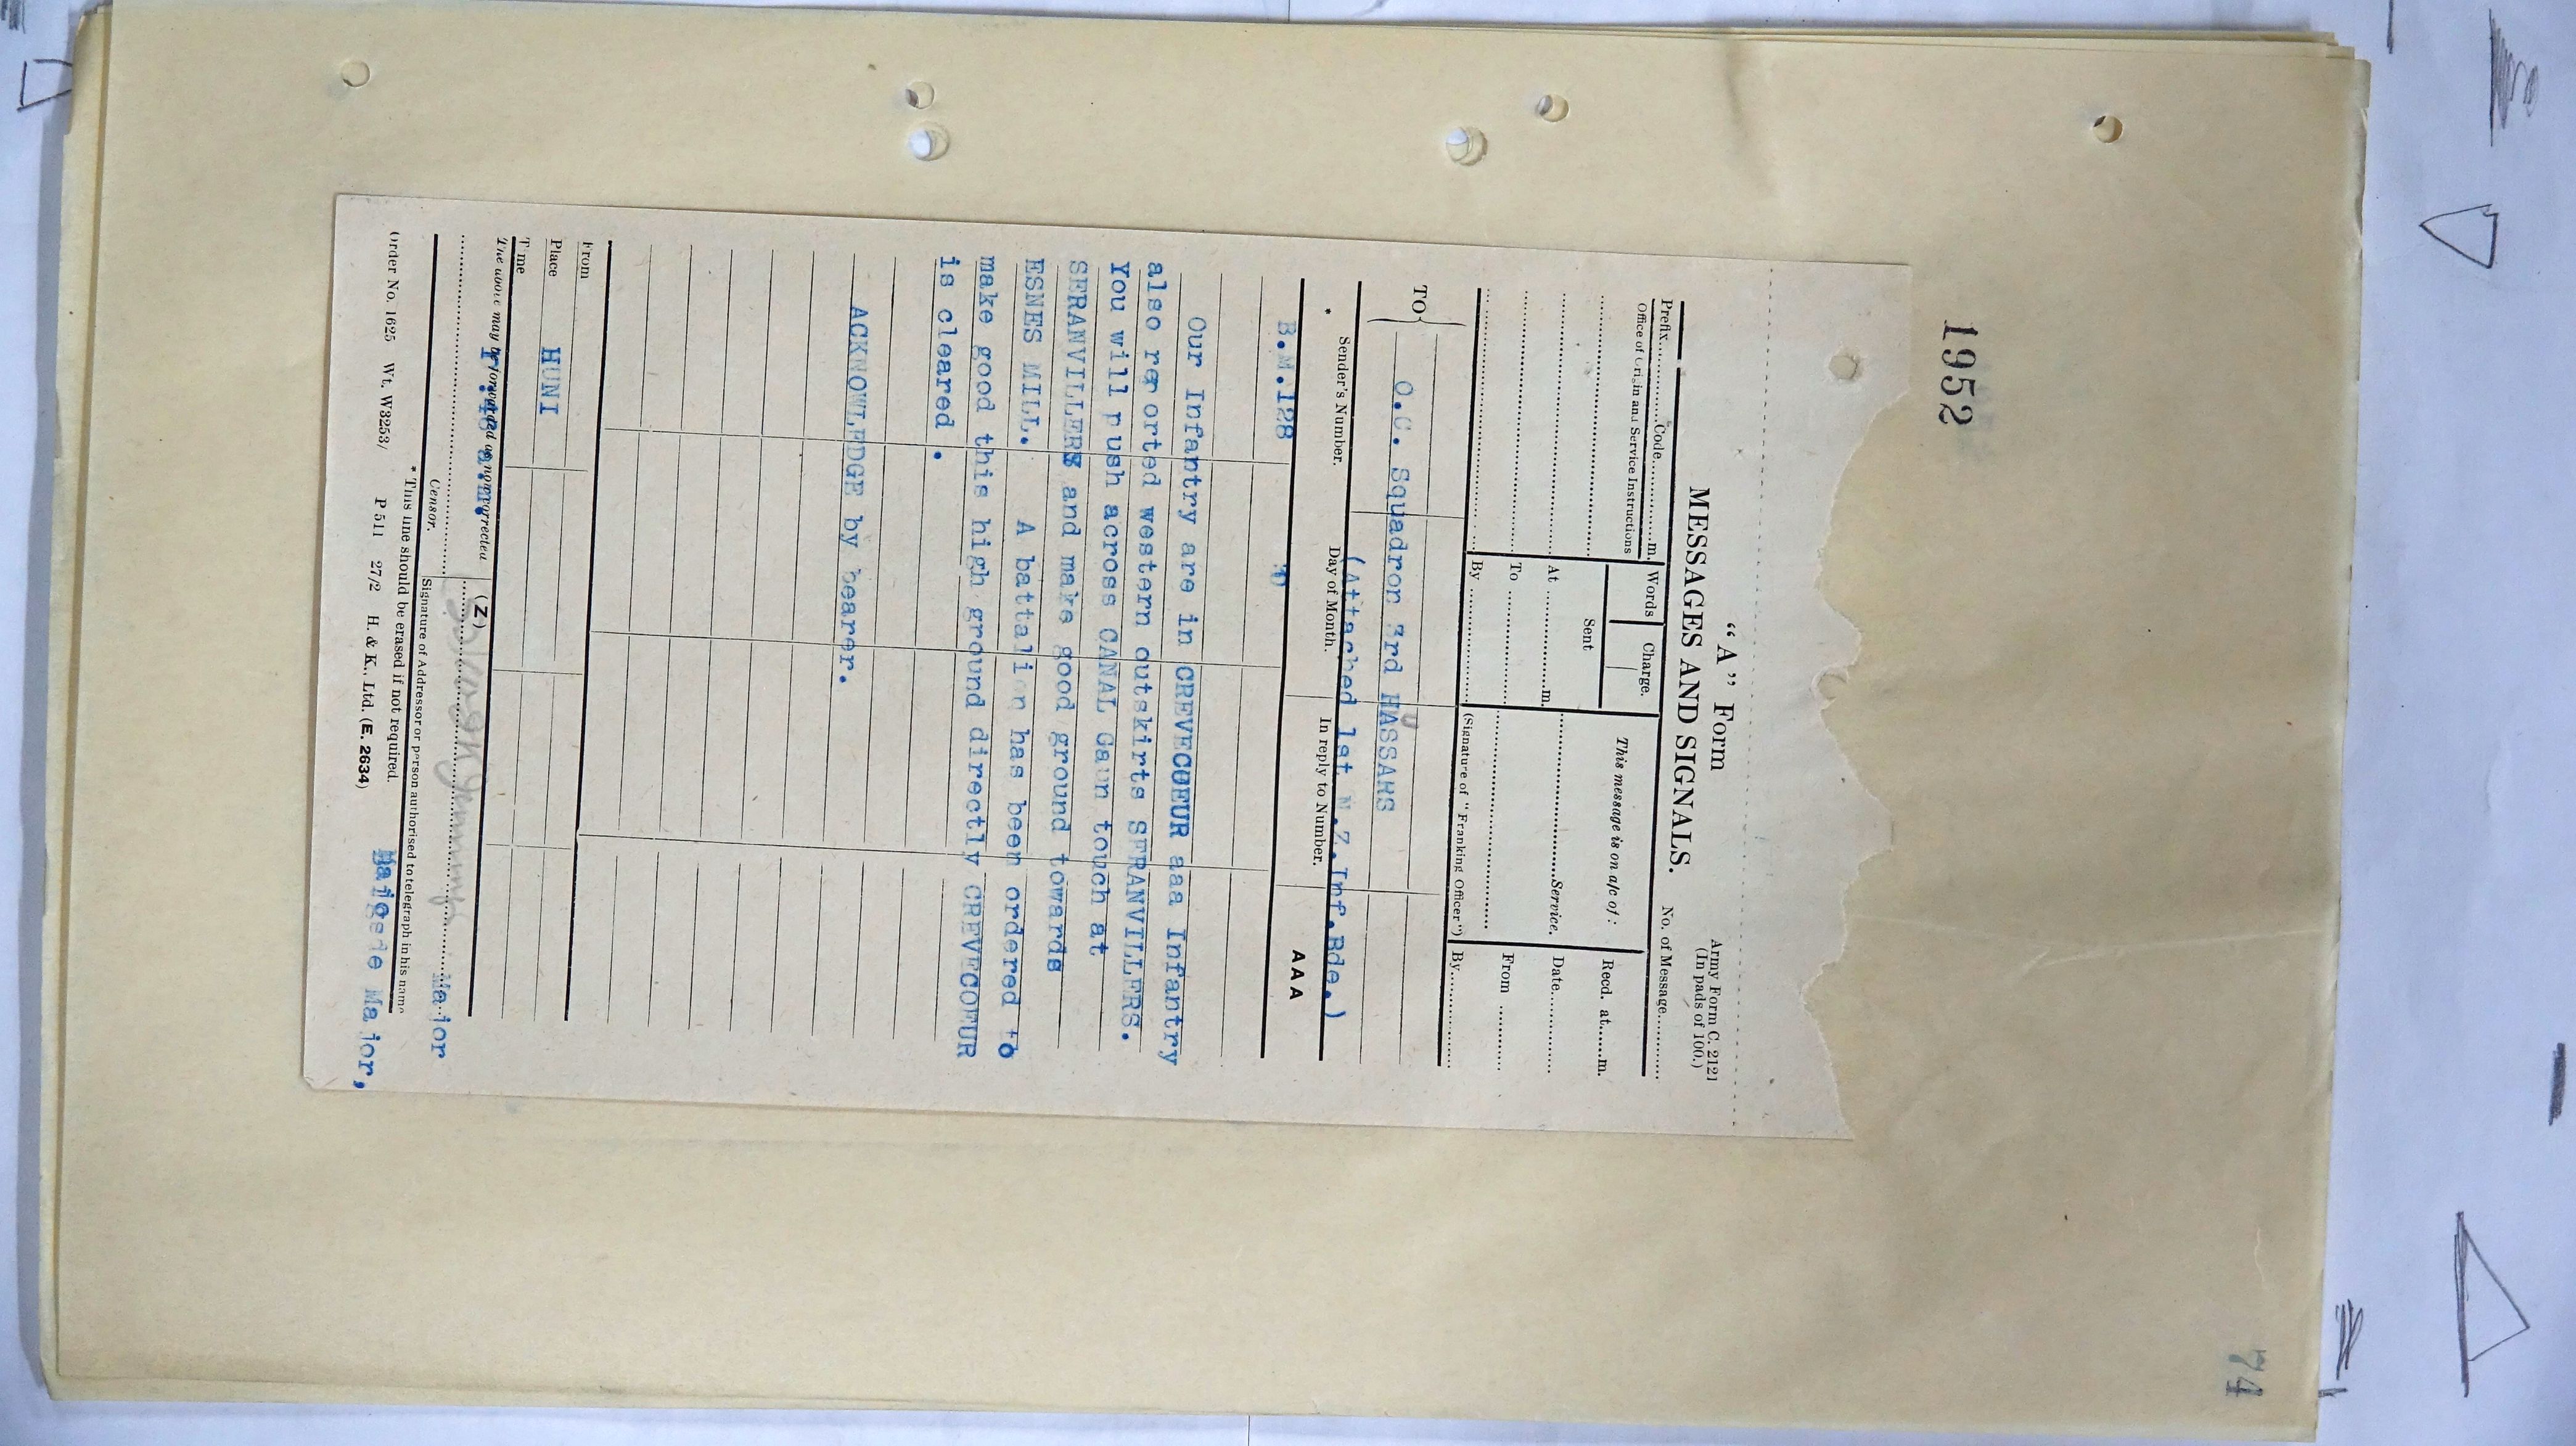 1952
74
"A" Form
Army Form C. 2121
(In pads of 100.)
MESSAGES AND SIGNALS.
No. of Message
Prefix Code m.
Words
Charge.
This message is on a/c of :
Recd. at m.
Office of Origin and Service Instructions
Sent
At m.
Service.
Date
To
From
By
(Signature of "Franking Officer")
By
TO
O.C. Squadron 3rd HASSARS
U
(Attached 1st N.Z.Inf.Bde.)
* Sender's Number.
Day of Month.
In reply to Number.
AAA
B.M.128
Our Infantry are in CREVECOEUR aaa Infantry
also reported western outskirts SERANVILLERS.
You will push across CANAL Gain touch at
SERANVILLERS and make good ground towards
ESNES MILL. A battalion has been ordered to
make good this high ground directly CREVECOEUR
is cleared.
ACKNOWLEDGE by bearer.
From
Place HUNI
Time
The above may be forwarded as now corrected
(Z)
Major
Censor.
Signature of Addressor or person authorised to telegraph in his name
* This line should be erased if not required.
Major,
Order No. 1625 Wt. W3253/ P 511 27/2 H. & K., Ltd. (E. 2634)